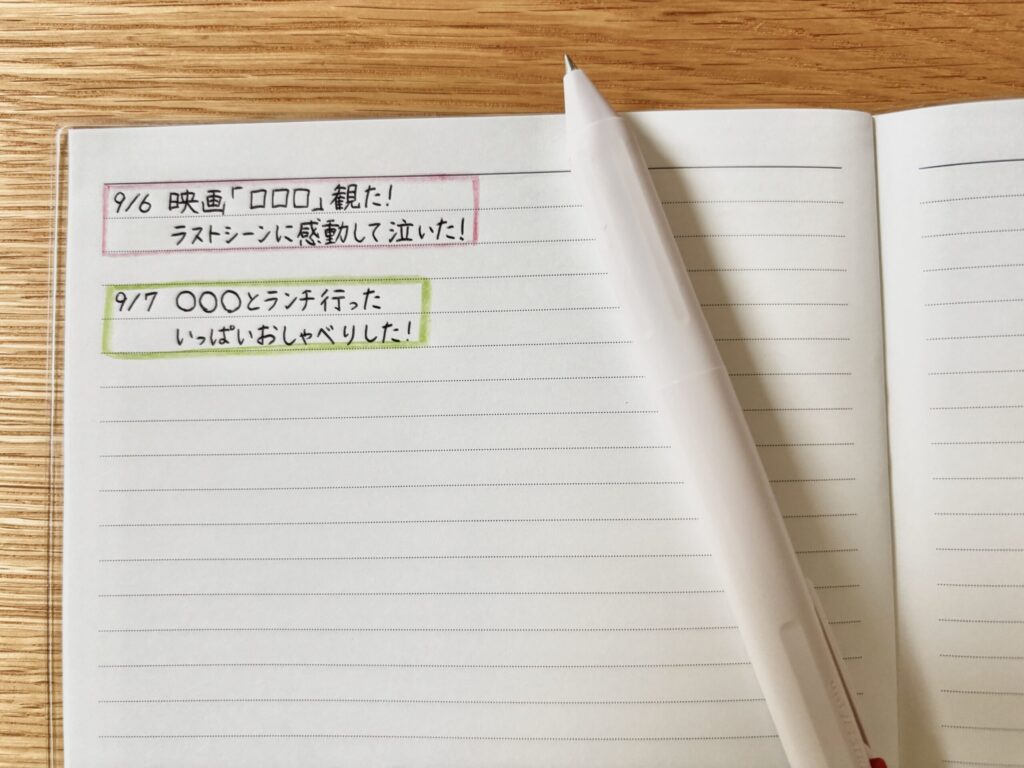 9/6 映画「□□□」観た!
ラストシーンに感動して泣いた!
9/7 ○○○とランチ行った
いっぱいおしゃべりした!